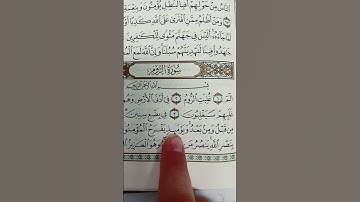 النَّاسُ مِنْ حَوْلِهِمْ أَفَبِالْبَاطِلِ يُؤْمِنُونَ وَبِنِعْمَةِ
وَمَنْ أَظْلَمُ مِمَّنِ افْتَرَىٰ عَلَى اللَّهِ كَذِبًا أَوْ
لَمَّا جَاءَهُ أَلَيْسَ فِي جَهَنَّمَ مَثْوًى لِلْكَافِرِينَ
جَاهَدُوا فِينَا لَنَهْدِيَنَّهُمْ سُبُلَنَا وَإِنَّ اللَّهَ لَمَعَ
سُورَةُ الرُّومِ
بِسْمِ اللَّهِ الرَّحْمَٰنِ الرَّحِيمِ
الم ١ غُلِبَتِ الرُّومُ ٢ فِي أَدْنَى الْأَرْضِ وَهُمْ
غَلَبِهِمْ سَيَغْلِبُونَ ٣ فِي بِضْعِ سِنِينَ
مِنْ قَبْلُ وَمِنْ بَعْدُ وَيَوْمَئِذٍ يَفْرَحُ الْمُؤْمِنُونَ
بِنَصْرِ اللَّهِ يَنْصُرُ مَنْ وَهُوَ الْعَزِيزُ